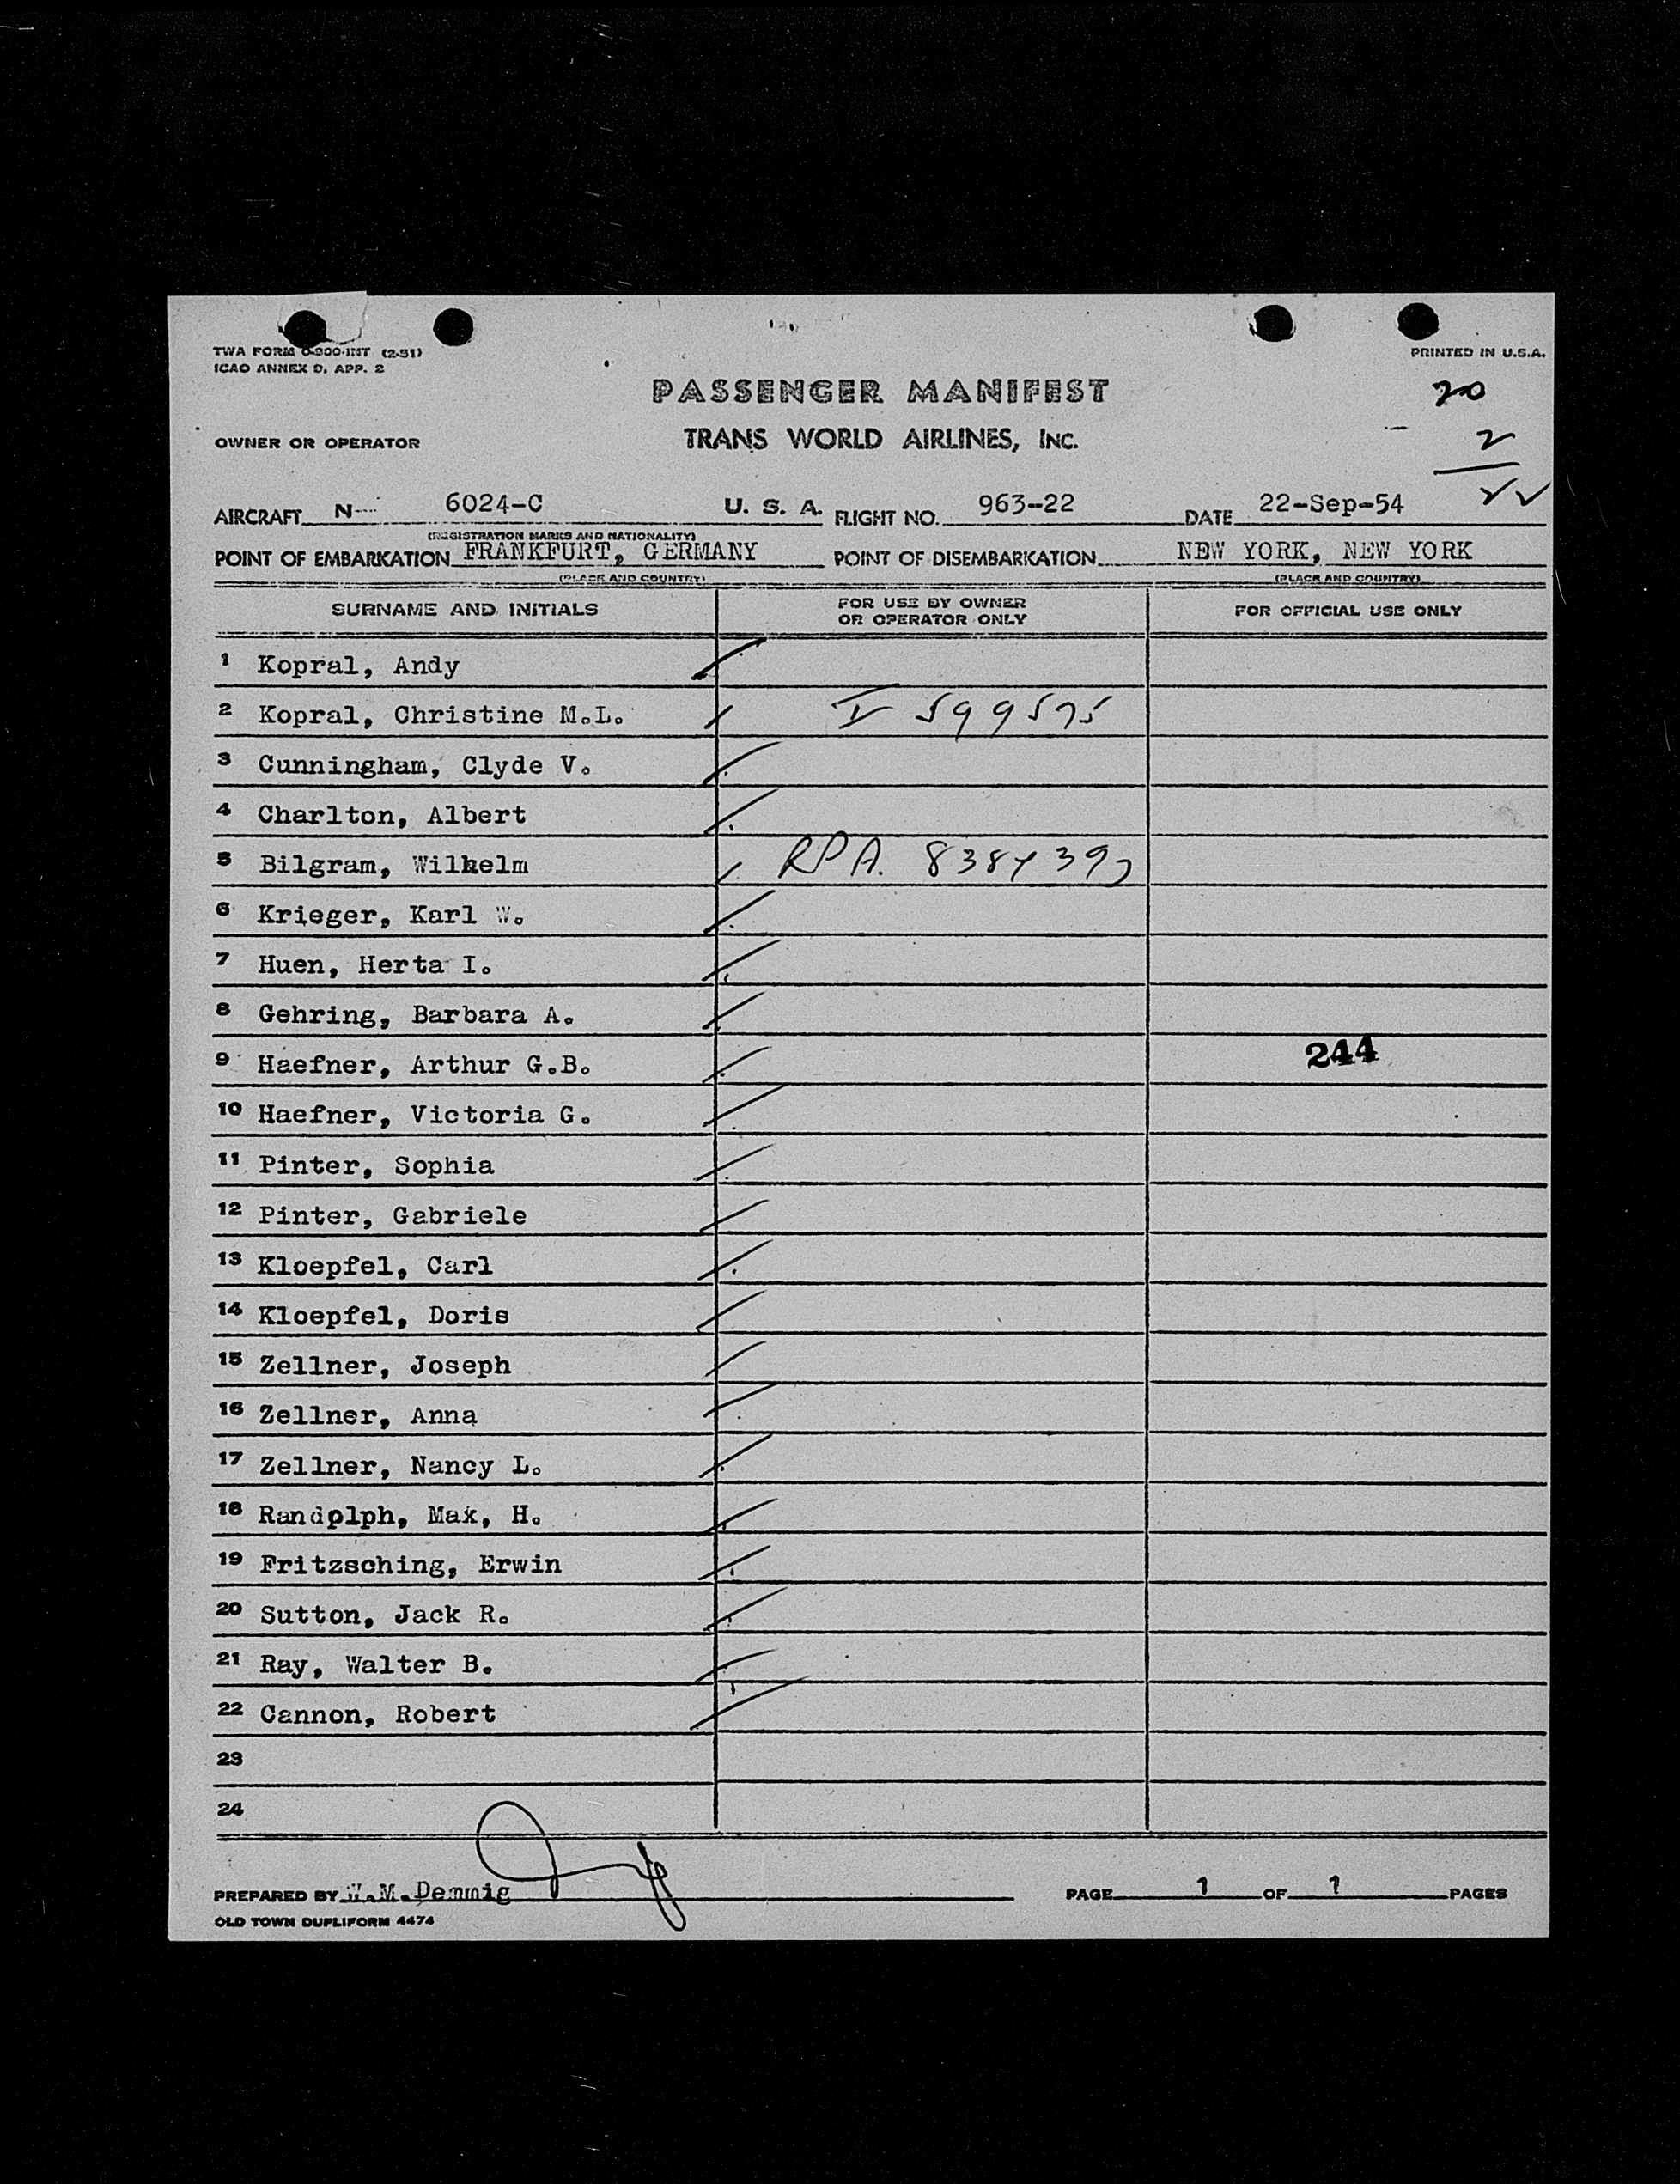 TWA FORM 0-900-INT (2-51)
ICAO ANNEX 9, APP. 2
PRINTED IN U.S.A.
PASSENGER MANIFEST
20
OWNER OR OPERATOR TRANS WORLD AIRLINES, INC.
2
22
AIRCRAFT N- 6024-C U. S. A. FLIGHT NO. 963-22 DATE 22-Sep-54
(REGISTRATION MARKS AND NATIONALITY)
POINT OF EMBARKATION FRANKFURT, GERMANY POINT OF DISEMBARKATION NEW YORK, NEW YORK
(PLACE AND COUNTRY) (PLACE AND COUNTRY)
SURNAME AND INITIALS FOR USE BY OWNER OR OPERATOR ONLY FOR OFFICIAL USE ONLY
1 Kopral, Andy
2 Kopral, Christine M.L. V 599575
3 Cunningham, Clyde V.
4 Charlton, Albert
5 Bilgram, Wilhelm RPA.
6 Krieger, Karl W.
7 Huen, Herta I.
8 Gehring, Barbara A.
9 Haefner, Arthur G.B. 244
10 Haefner, Victoria G.
11 Pinter, Sophia
12 Pinter, Gabriele
13 Kloepfel, Carl
14 Kloepfel, Doris
15 Zellner, Joseph
16 Zellner, Anna
17 Zellner, Nancy L.
18 Randolph, Max, H.
19 Fritzsching, Erwin
20 Sutton, Jack R.
21 Ray, Walter B.
22 Cannon, Robert
23
24
PREPARED BY W.M.Demmig PAGE 1 OF 1 PAGES
OLD TOWN DUPLIFORM 4474